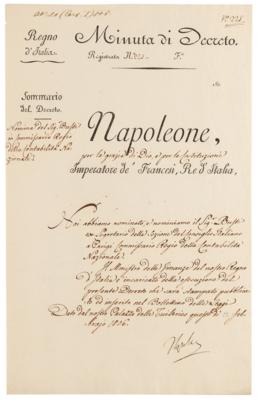 Regno
d'Italia.
Minuta di Decreto.
Registrata N.
Sommario
del Decreto.
Nomina del Sig.
Commissario
della Contabilità Na-
zionale.
Napoleone,
per la grazia di Dio, e per le Costituzioni
Imperatore de' Francesi, Re d'Italia,
Noi abbiamo nominato, e nominiamo il Sig.
Segretario della Sezione del Consiglio Italiano
a Parigi Commissario Regio della Contabilità
Nazionale.
Il Ministro delle Finanze del nostro Regno
d'Italia è incaricato della esecuzione del
presente Decreto che sarà stampato, pubblica-
to ed inserito nel Bollettino delle Leggi.
Dato dal nostro Palazzo delle Tuileries questo dì
1806.